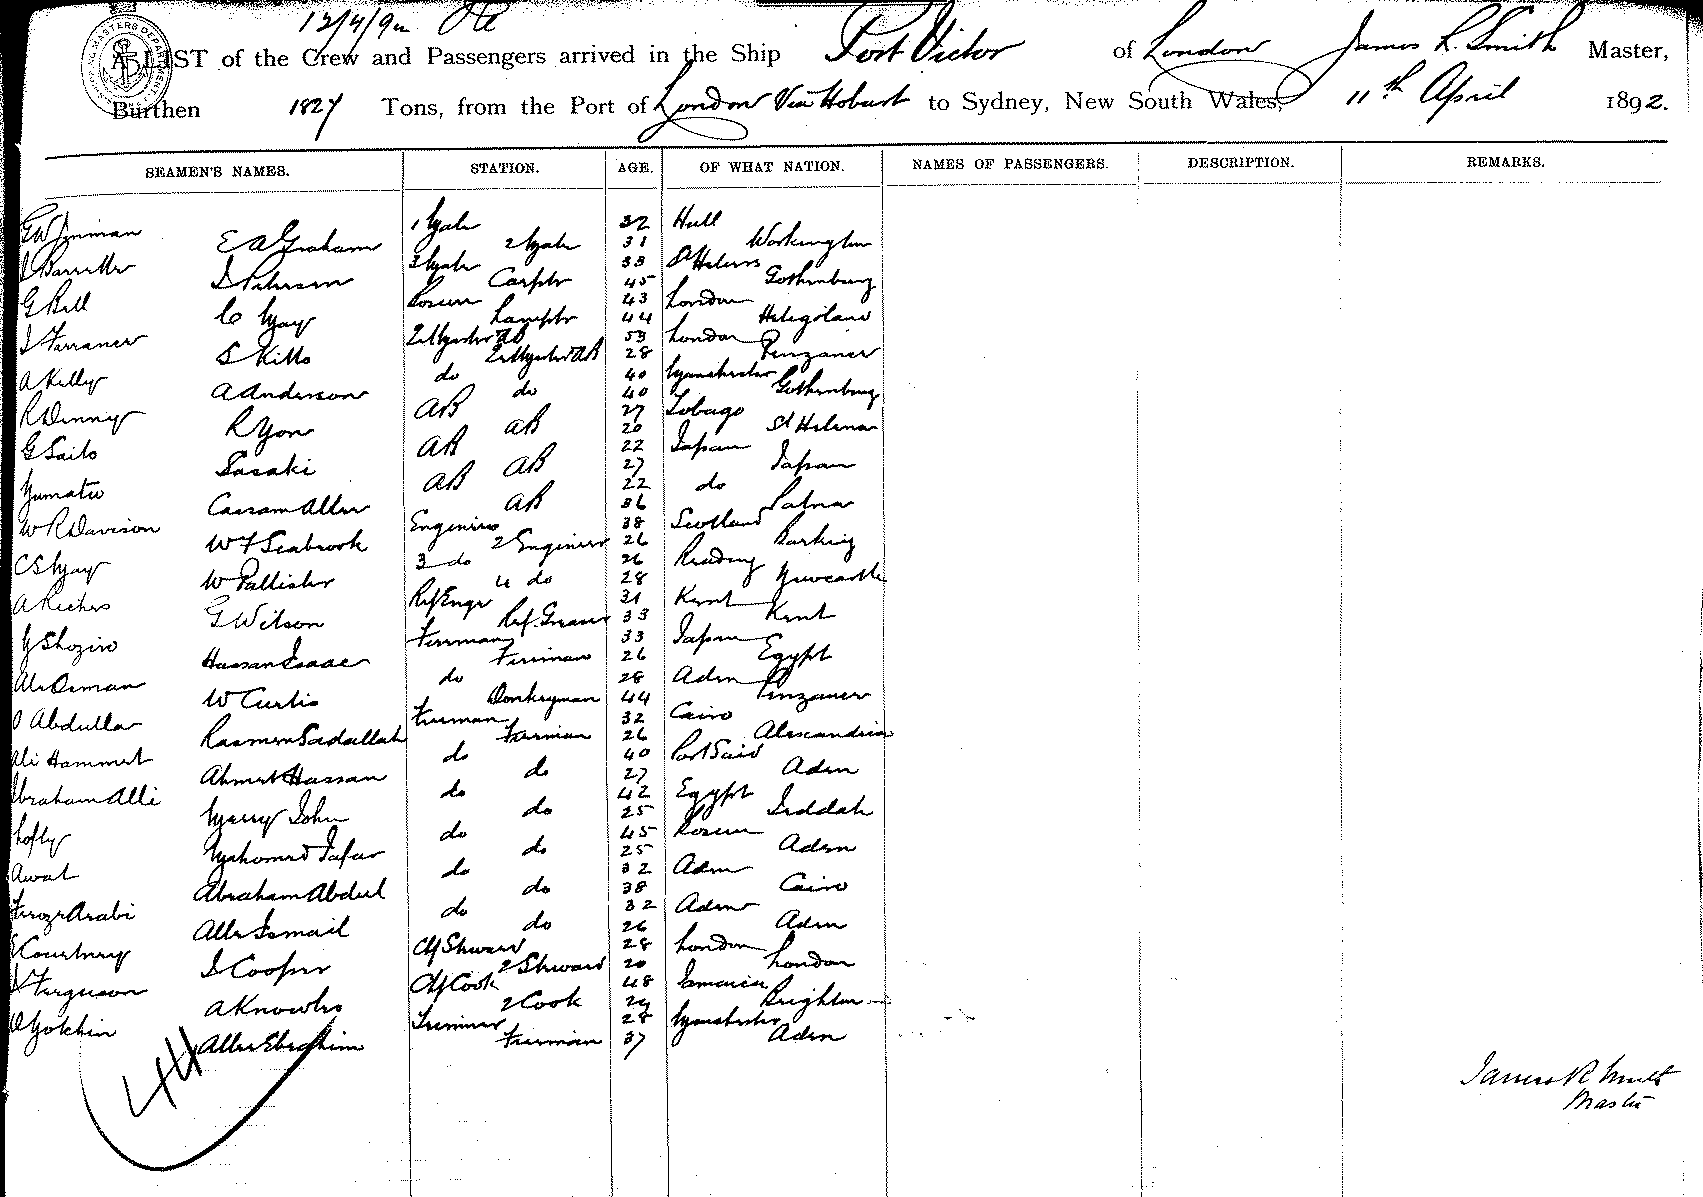 12/4/92
A LIST of the Crew and Passengers arrived in the Ship Port Victor of London James R. Smith Master,
Burthen 1827 Tons, from the Port of London Via Hobart to Sydney, New South Wales, 11th April 1892.
SEAMEN'S NAMES. STATION. AGE. OF WHAT NATION. NAMES OF PASSENGERS. DESCRIPTION. REMARKS.
1 Mate 32 Hull
E A Graham 2 Mate 31 Workington
3 Mate 33 St Helens
Carptr 45 Gothenburg
G Bell Bosun 43 London
C May Lamptr 44 Heligoland
53 London
S Kitto 28 Penzance
A Kelly do 40 Manchester
A Anderson do 40 Gothenburg
R Denny AB 27 Tobago
R Yon AB 20 St Helena
G Saito AB 22 Japan
Sasaki AB 27 Japan
AB 22 do
AB 36
W R Davison Engineer 38 Scotland
W F Seabrook 2 Engineer 26 Barking
C S May 3 do 26 Reading
W Pallister 4 do 28 Newcastle
Ref Engr 31 Kent
G Wilson 33 Kent
Y Shoziro Fireman 33 Japan
Hassan Isaac Fireman 26 Egypt
Ali Osman do 28 Aden
W Curtis Donkeyman 44 Penzance
Abdulla Fireman 32 Cairo
Sadallah Fireman 26 Alexandria
Ali Hammet do 40 Port Said
Ahmet Hassan do 27 Aden
Abraham Alli do 42 Egypt
John do 25 Jeddah
do 45
Mahomed Jafar do 25 Aden
Awat do 32 Aden
Abraham Abdul do 38 Cairo
Arabi do 32 Aden
Alli Ismail do 26 Aden
Courtney Chf Steward 28 London
J Cooper 2 Steward 20 London
Ferguson Chf Cook 48 Jamaica
A Knowles 2 Cook 24 Brighton
Trimmer 28 Manchester
Alli Ebrahim Fireman 37 Aden
44
James R Smith
Master